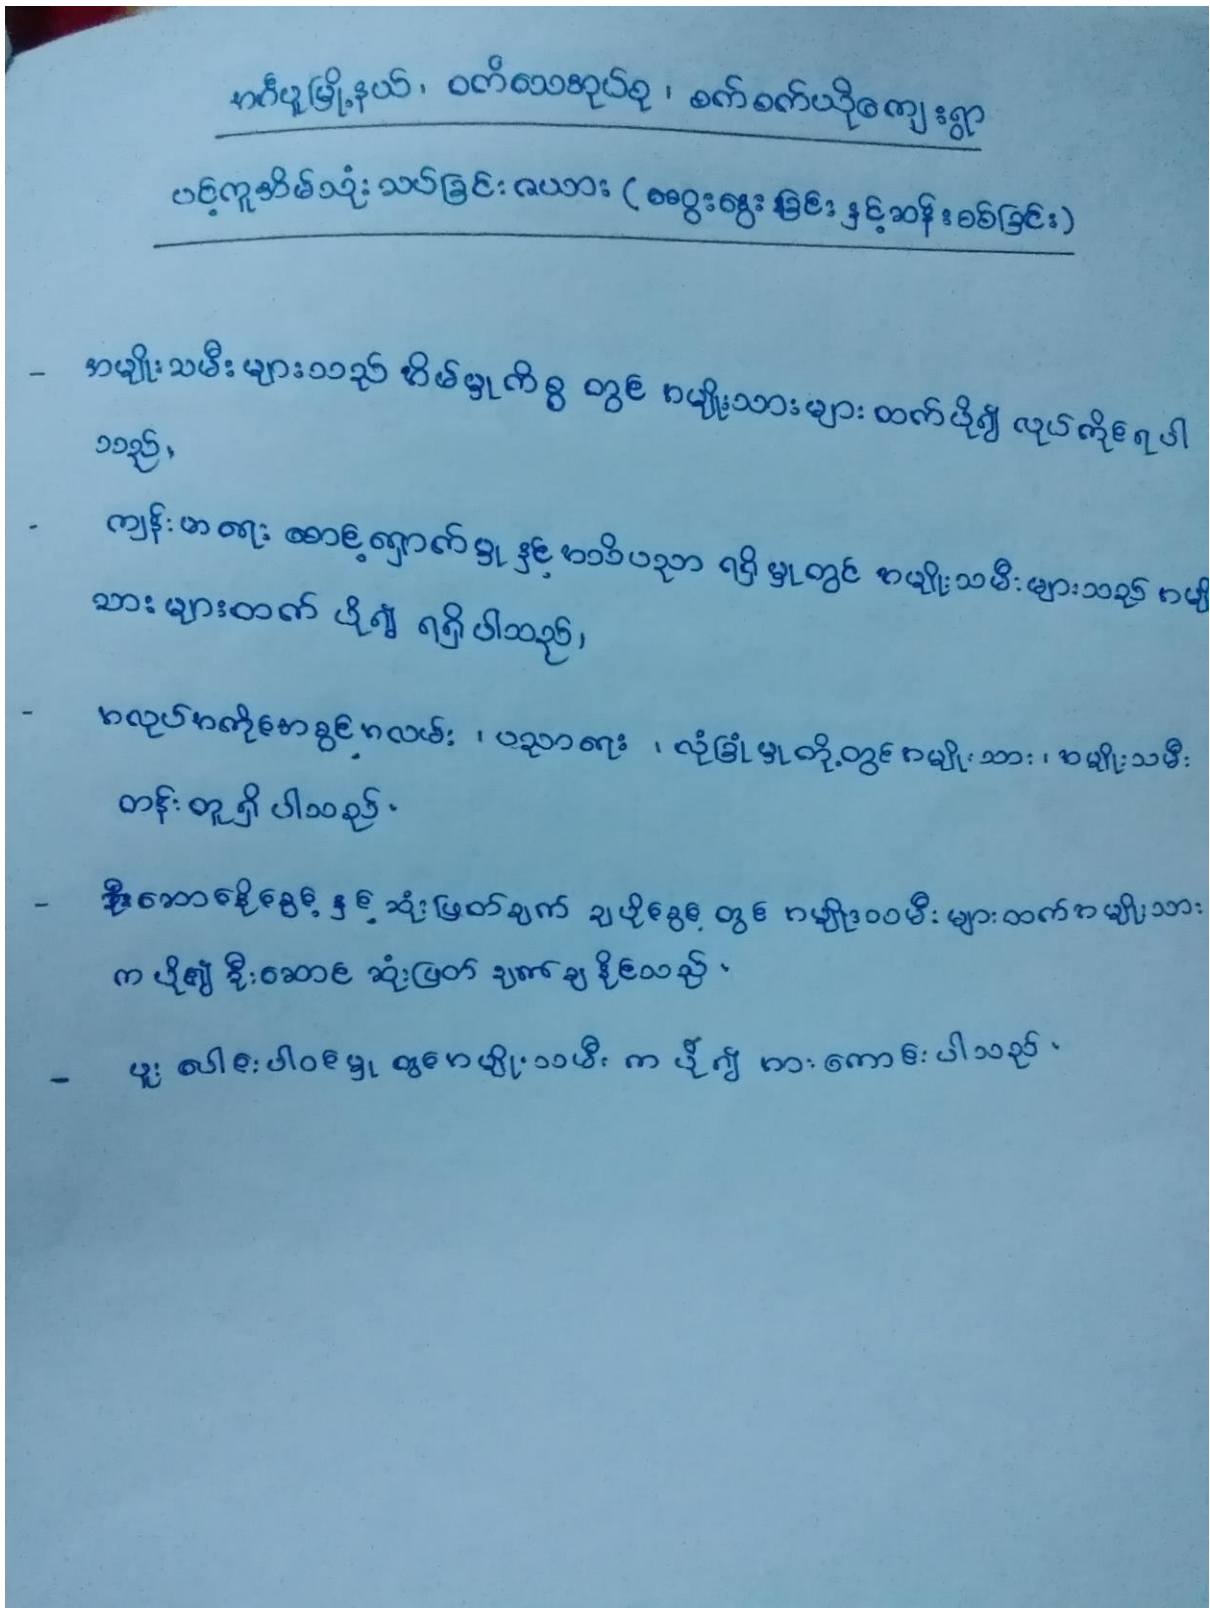 အင်္ဂပူမြို့နယ်၊ ဝက်သေအုပ်စု၊ စက်စက်ယိုကျေးရွာ
ပင့်ကူအိမ်သုံးသပ်ခြင်းဇယား (ဆွေးနွေးခြင်းနှင့်ဆန်းစစ်ခြင်း)
- အမျိုးသမီးများသည် အိမ်မှုကိစ္စ တွင် အမျိုးသားများထက်ပို၍ လုပ်ကိုင်ရပါ
သည်၊
- ကျန်းမာရေး စောင့်ရှောက်မှု နှင့် အသိပညာ ရရှိမှုတွင် အမျိုးသမီးများသည် အမျိုး
သားများထက် ပို၍ ရရှိပါသည်၊
- အလုပ်အကိုင်အခွင့်အလမ်း ၊ ပညာရေး ၊ လုံခြုံမှုတို့တွင် အမျိုးသား၊ အမျိုးသမီး
တန်းတူရှိပါသည်။
- ဦးဆောင်နိုင်ခွင့် နှင့် ဆုံးဖြတ်ချက် ချပိုင်ခွင့် တွင် အမျိုးသမီးများထက်အမျိုးသား
က ပို၍ ဦးဆောင် ဆုံးဖြတ် ချက်ချ နိုင်သည်။
- ပူးပေါင်းပါဝင်မှု တွင်အမျိုးသမီး က ပို၍ အားကောင်းပါသည်။